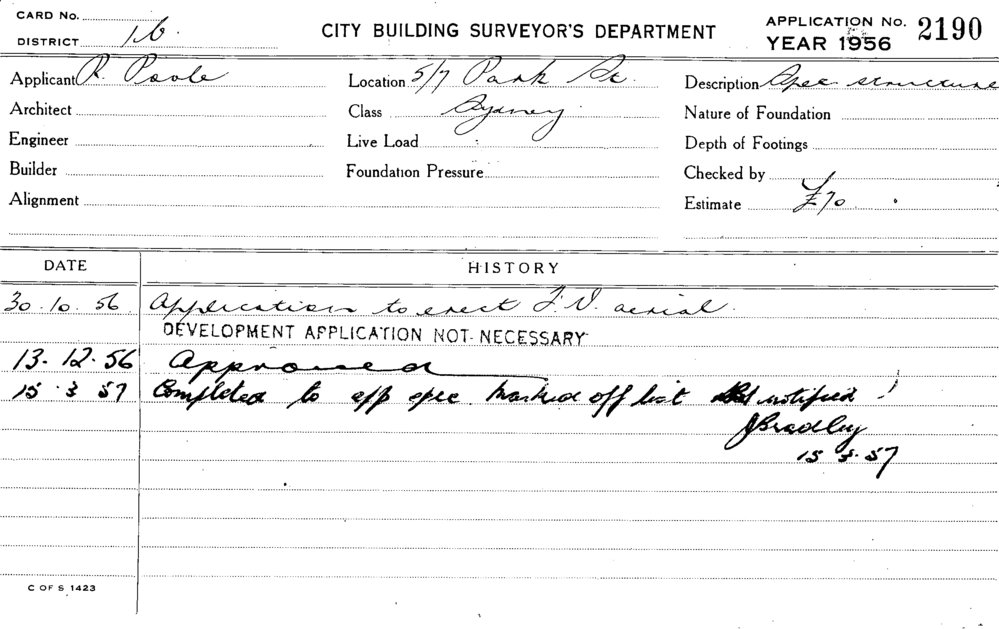 CARD No.
CITY BUILDING SURVEYOR'S DEPARTMENT
APPLICATION No. 2190
DISTRICT 16.
YEAR 1956
Applicant R. Poole
Location 5/7 Park St.
Description Spec structure
Architect
Class Sydney
Nature of Foundation
Engineer
Live Load
Depth of Footings
Builder
Foundation Pressure
Checked by
Alignment
Estimate £70
DATE
HISTORY
30.10.56 Application to erect T.V. aerial.
DEVELOPMENT APPLICATION NOT NECESSARY
13.12.56 Approved
15.3.57 Completed to app spec marked off list notified
JBradley
15.3.57
C OF S 1423